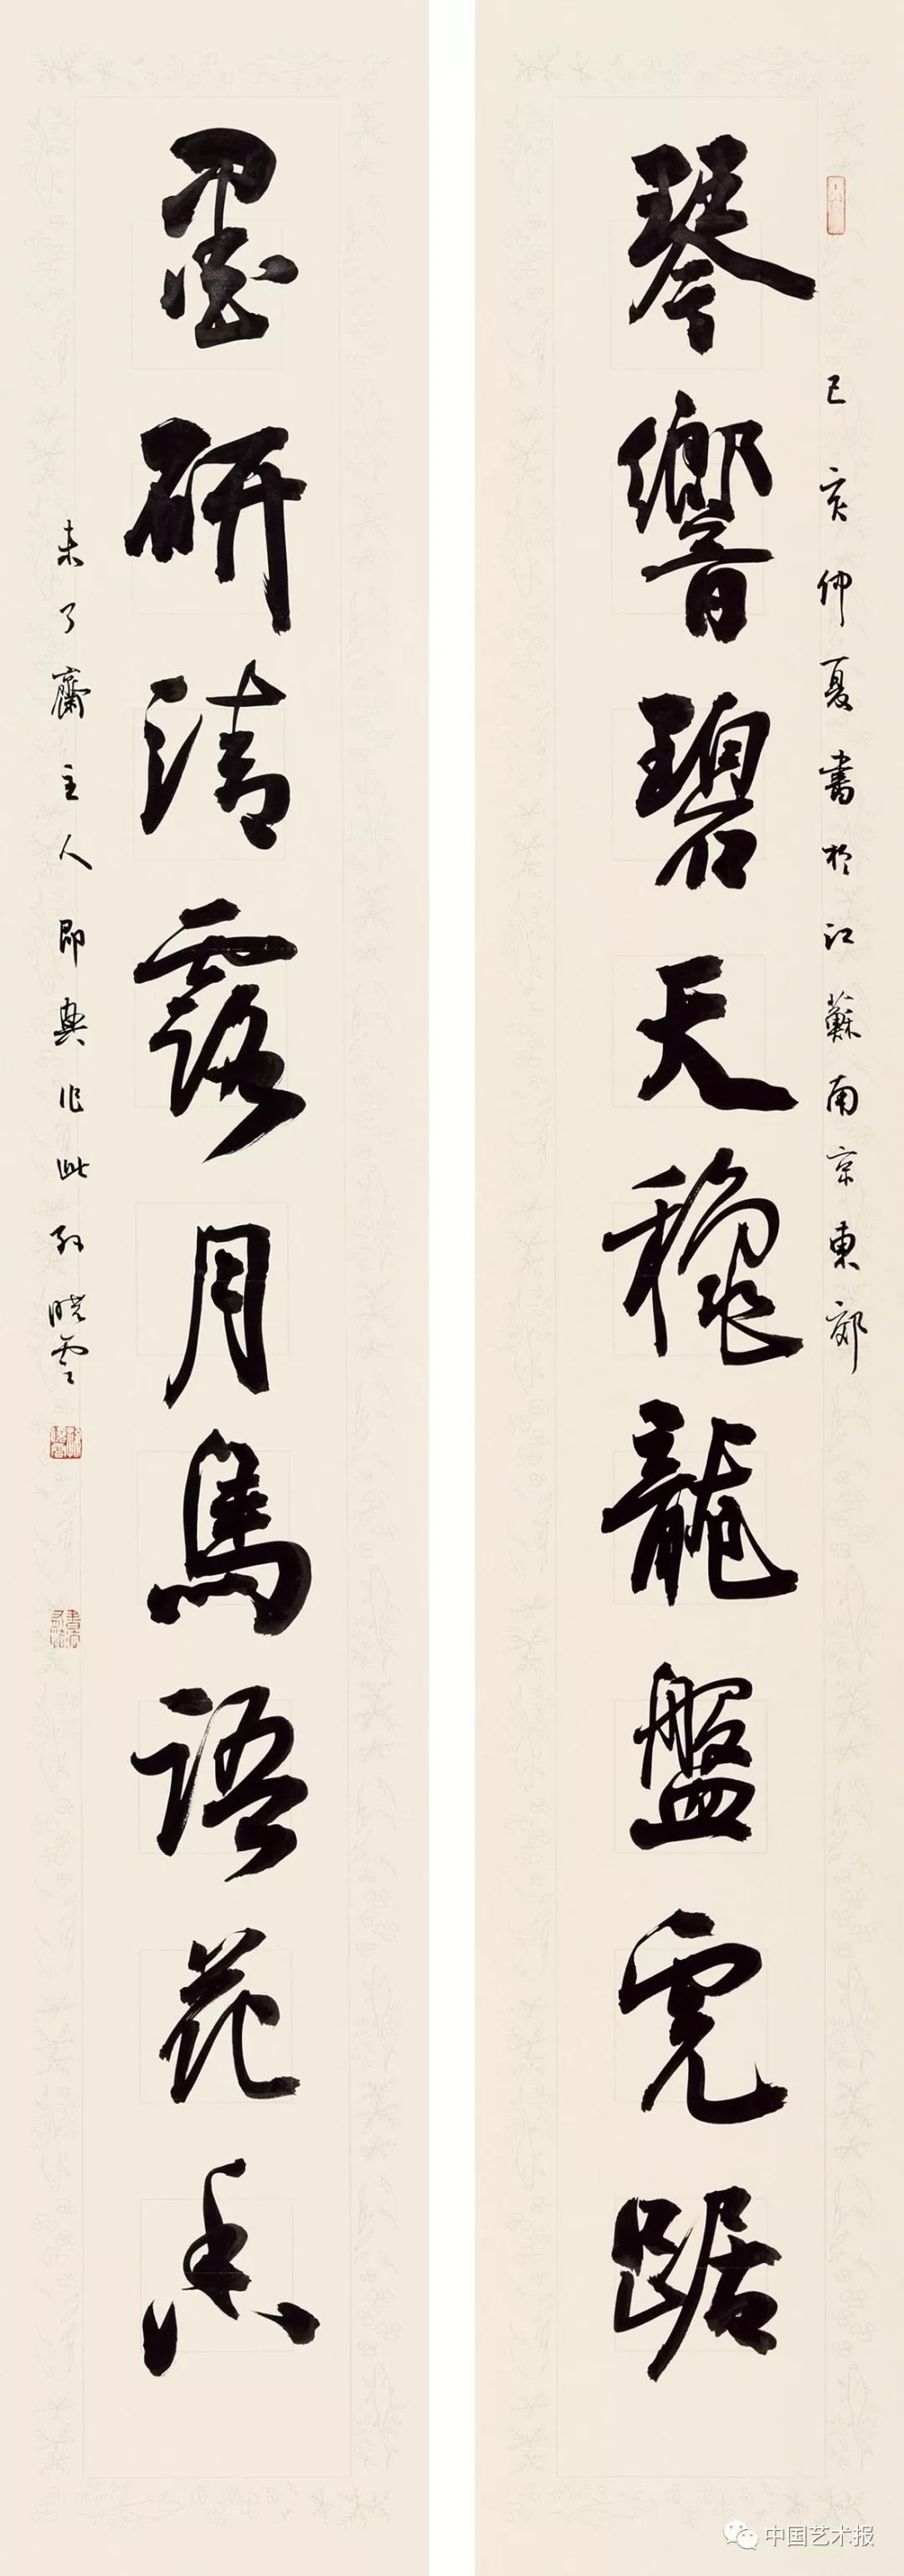 己亥仲夏書於江蘇南京東郊
琴響碧天穩龍盤虎踞
墨研清露月鳥語花香
未了齋主人即興作此孫曉雲
中国艺术报